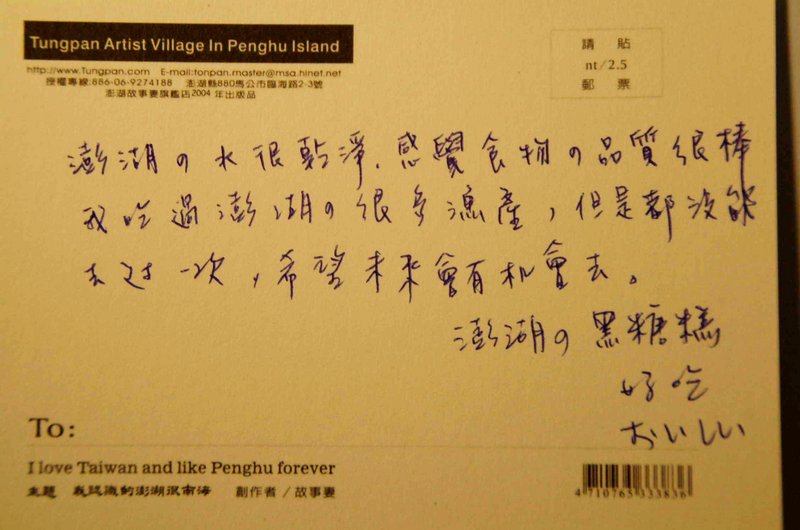 Tungpan Artist Village In Penghu Island
http://www.Tungpan.com E-mail:tonpan.master@msa.hinet.net
授權專線:886-06-9274188 澎湖縣880馬公市臨海路2-3號
澎湖故事妻旗鑑店2004 年出版品
請 貼
nt/2.5
郵 票
澎湖の水很乾淨、感覺食物の品質很棒
我吃過澎湖の很多漁產,但是都沒能
去过一次,希望未來會有机會去。
澎湖の黑糖糕
好吃
おいしい
To:
I love Taiwan and like Penghu forever
主題 我認識的澎湖汦南海 創作者/故事妻
4 710765 333836